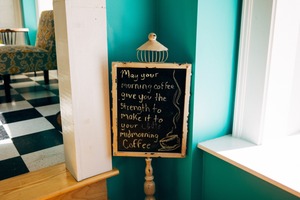 May your
morning coffee
give you the
strength to
make it to
your
midmorning
Coffee